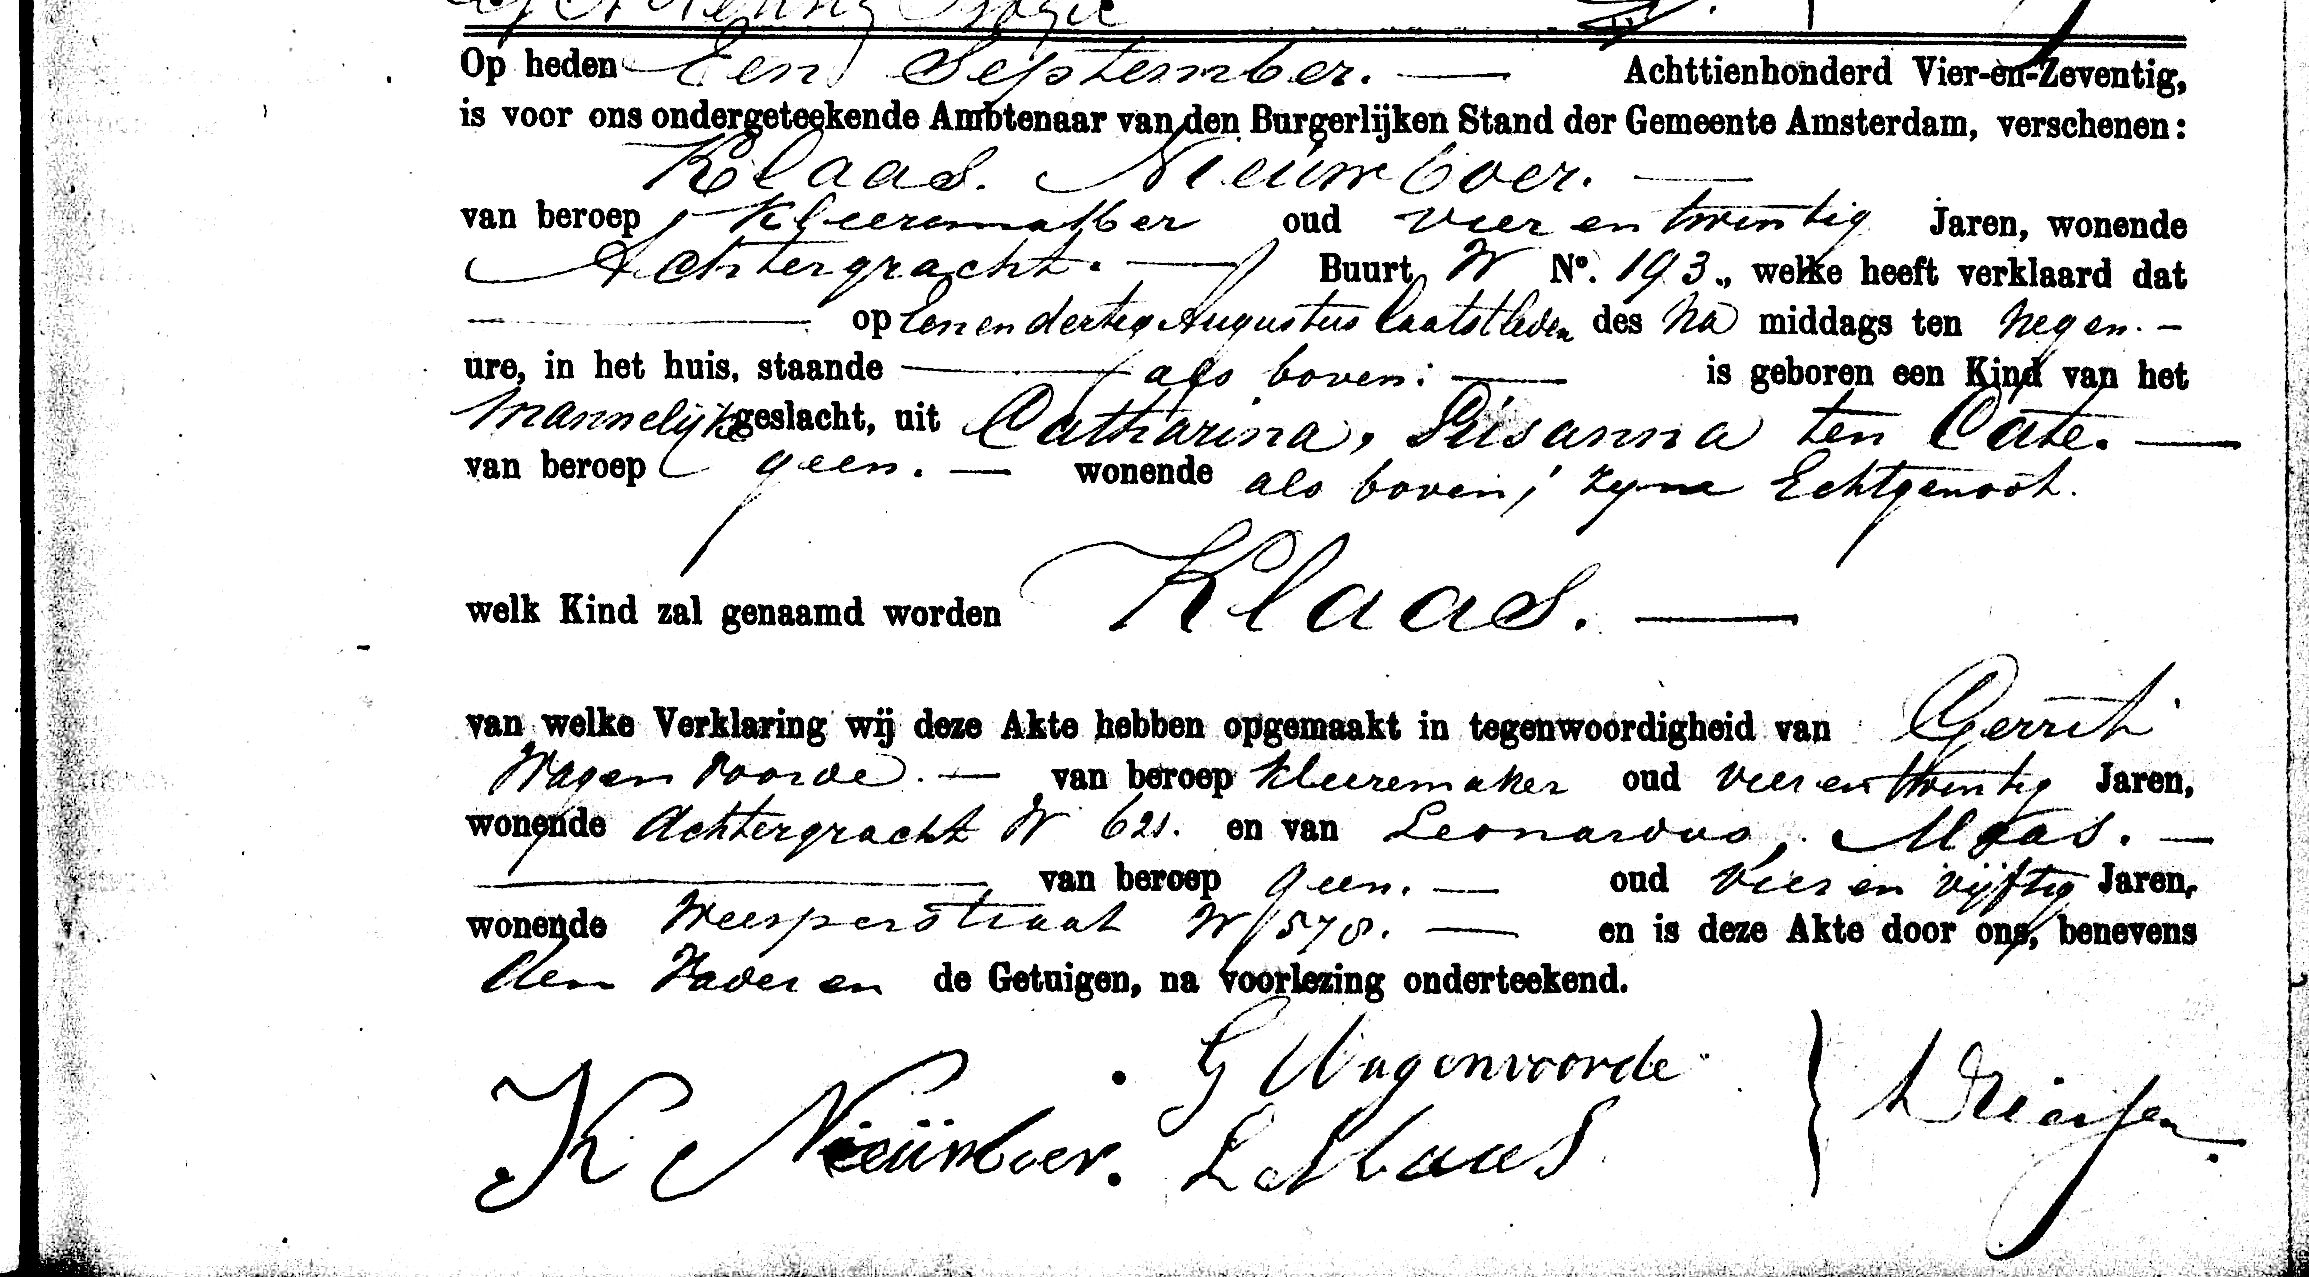 Op heden Een September. — Achttienhonderd Vier-en-Zeventig,
is voor ons ondergeteekende Ambtenaar van den Burgerlijken Stand der Gemeente Amsterdam, verschenen:
Klaas. Nieuwboer. —
van beroep Kleermakker oud vier en twintig Jaren, wonende
Achtergracht. — Buurt W No. 193., welke heeft verklaard dat
— op Een en dertig Augustus laatstleden des Na middags ten Negen. —
ure, in het huis, staande — als boven: — is geboren een Kind van het
Mannelijk geslacht, uit Catharina, Susanna ten Cate. —
van beroep geen. — wonende als boven; zijne Echtgenoot.
welk Kind zal genaamd worden Klaas. —
van welke Verklaring wij deze Akte hebben opgemaakt in tegenwoordigheid van Gerrit
Wagenvoorde. — van beroep Kleeremaker oud vier en twintig Jaren,
wonende Achtergracht W 621. en van Leonardus, Maas. —
— van beroep geen. — oud Vier en vijftig Jaren,
wonende Weesperstraat W 578. — en is deze Akte door ons, benevens
den Vader en de Getuigen, na voorlezing onderteekend.
G Wagenvoorde
K Nieüwboer. L Maas